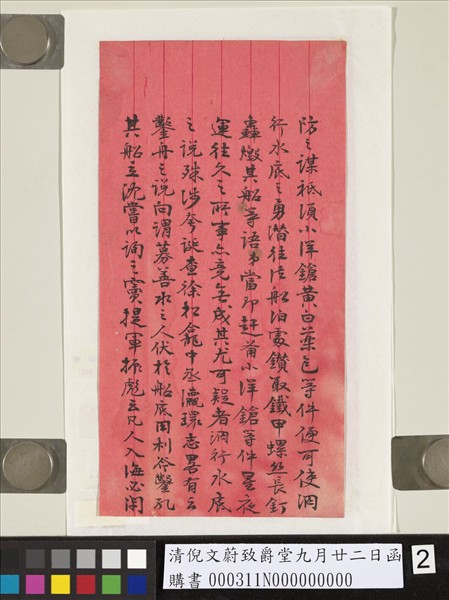 防之謀祇須小洋鎗黃白藥包等件便可使泅
行水底之勇潛往法船泊處鑽取鐵甲螺丝長釘
轟燬其船等語弟當即趕備小洋鎗等件星夜
運往久之所事亦竟無成其尤可疑者泅行水底
之說殊涉夸誕查徐松龕中丞瀛環志畧有云
鑿舟之說向謂募善水之人伏於船底用利斧鑿孔
其船立沈嘗以詢之竇提軍振彪云凡人入海必閉
清倪文蔚致爵堂九月廿二日函
購書 000311N000000000
2